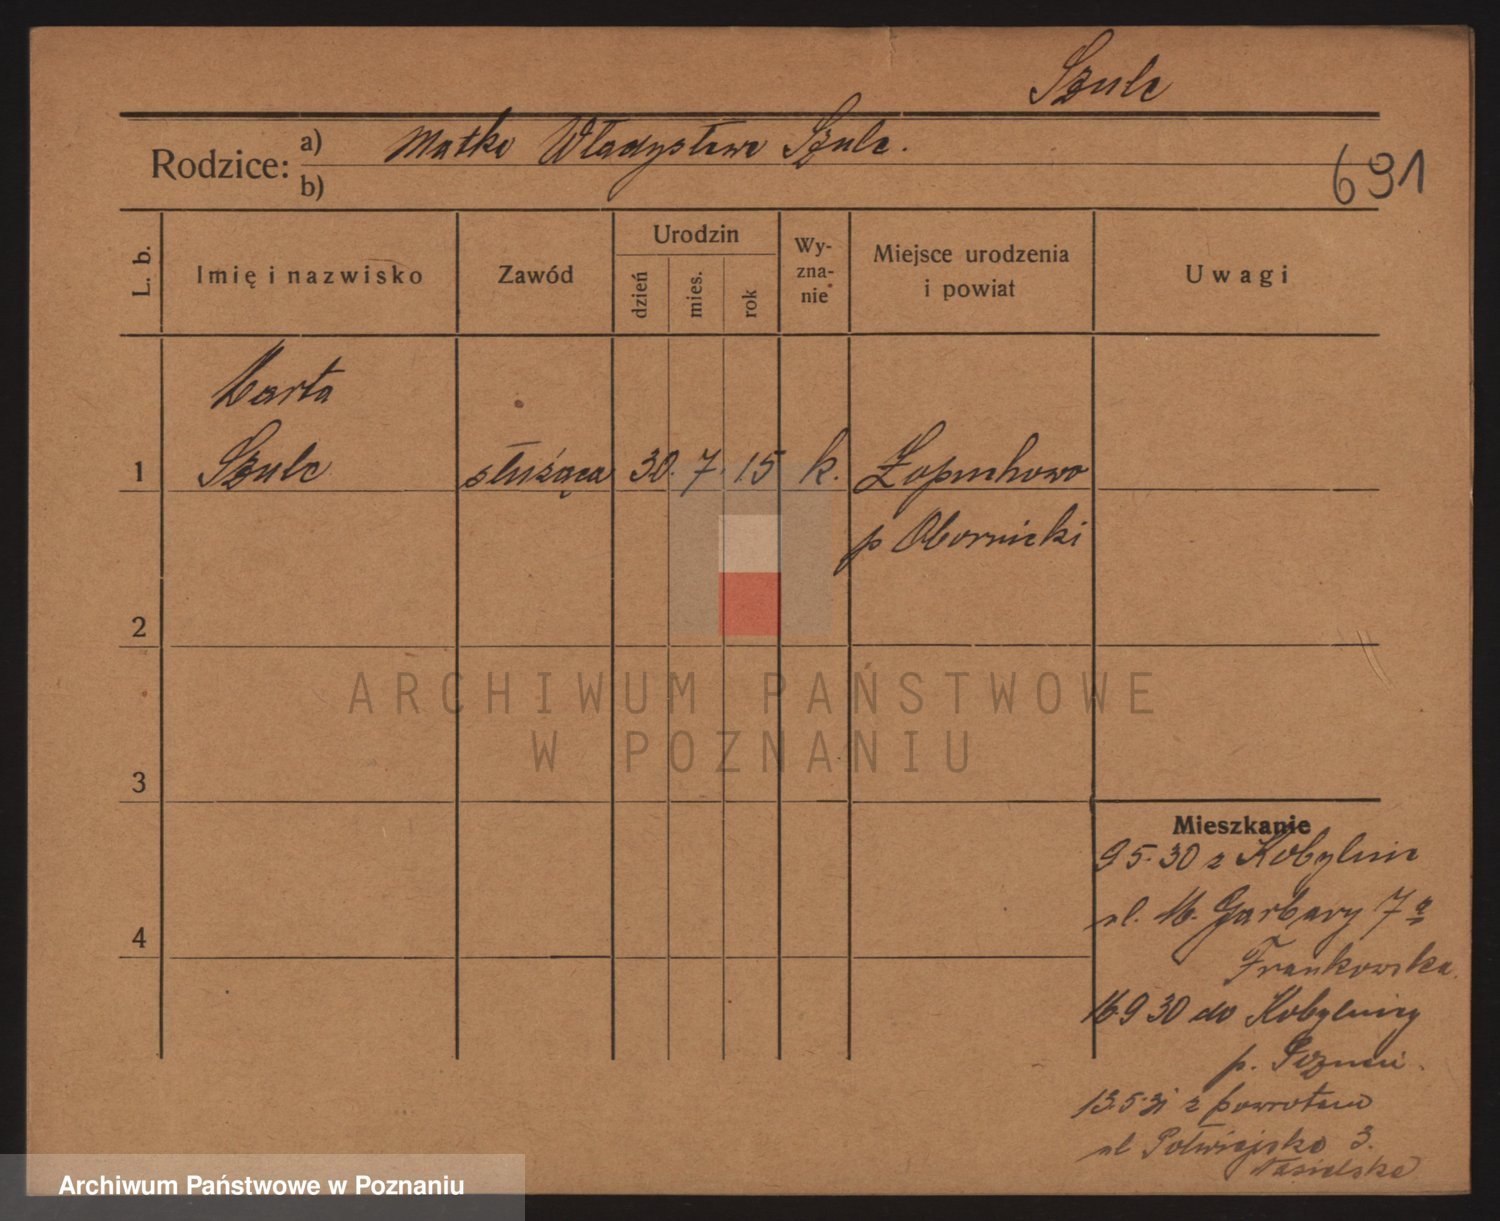 Szulc
Rodzice: a) Matka Władysława Szulc.
b)
691
L. b.
Imię i nazwisko
Zawód
Urodzin
dzień
mies.
rok
Wy-
zna-
nie
Miejsce urodzenia
i powiat
Uwagi
Marta
1 Szulc służąca 30. 7. 15 k. Łopuchowo
p Obornicki
2
3
4
Mieszkanie
9 5. 30 z Kobylnic
ul. W. Garbary 7 a
Frankowska.
16 9 30 do Kobylnicy
p. Poznań.
13.5.31 z powrotem
ul Półwiejska 3.
ARCHIWUM PAŃSTWOWE
W POZNANIU
Archiwum Państwowe w Poznaniu